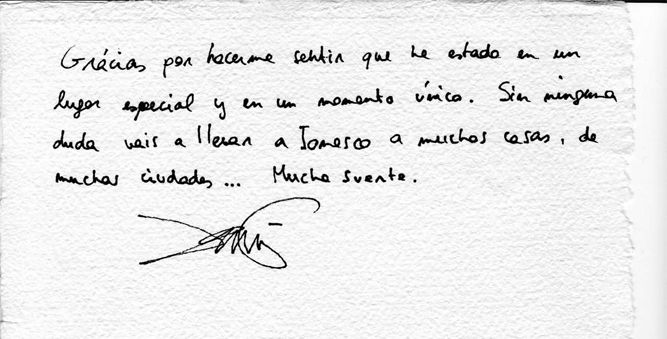 Grácias por hacerme sentir que he estado en un
lugar especial y en un momento único. Sin ninguna
duda vais a llevar a Ionesco a muchas casas, de
muchas ciudades... Mucha suerte.